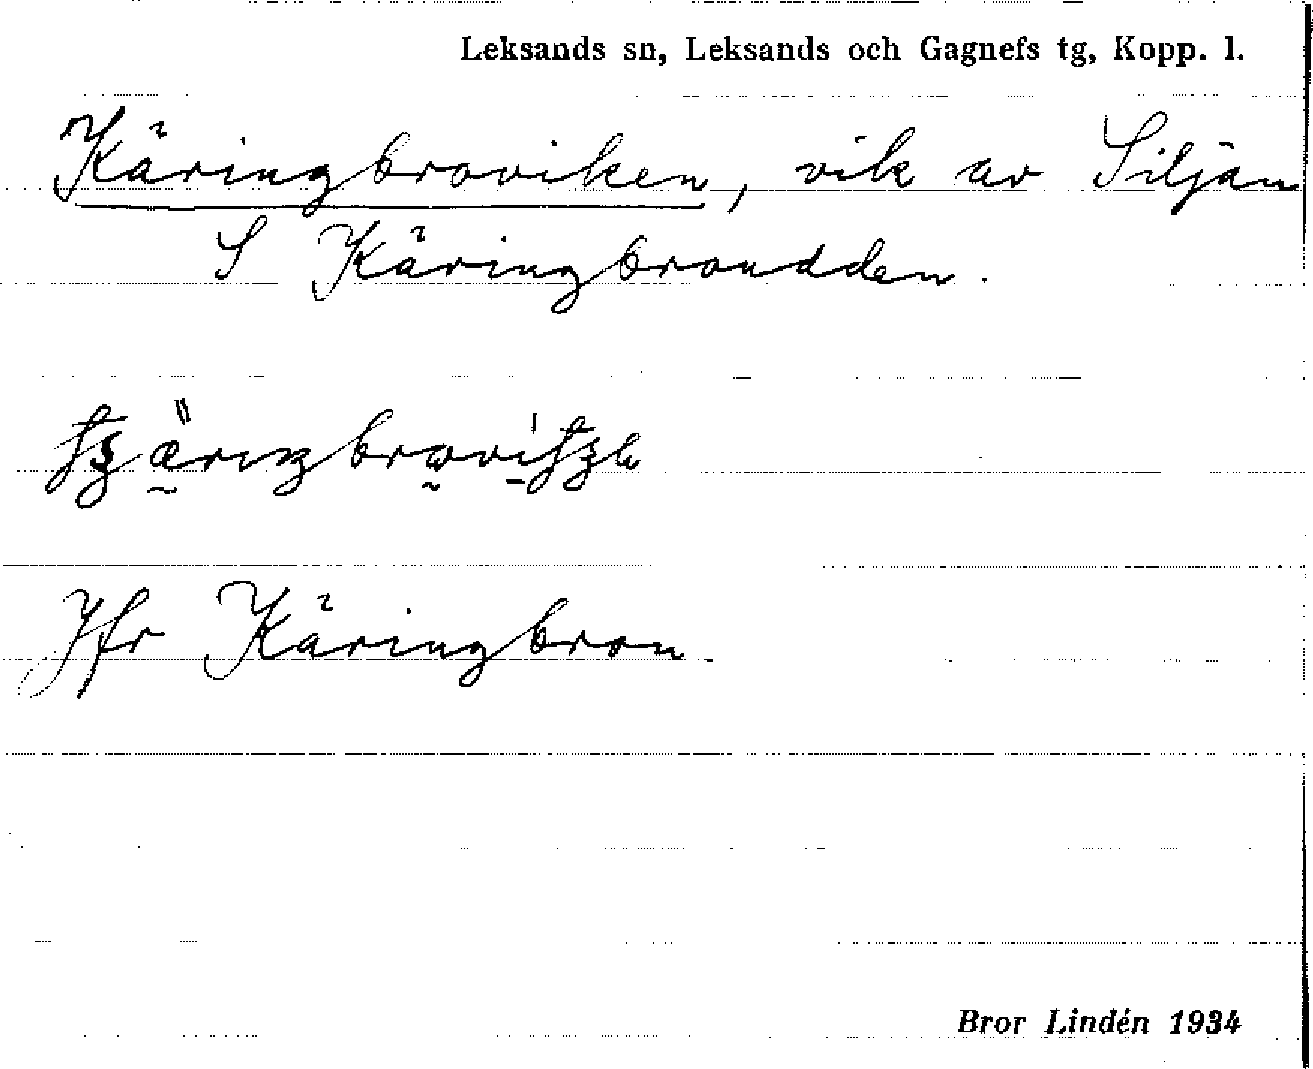 Leksands sn, Leksands och Gagnefs tg, Kopp. l.
Käringbroviken, vik av Siljan
S Käringbroudden.
Jfr Käringbron
Bror Lindén 1934